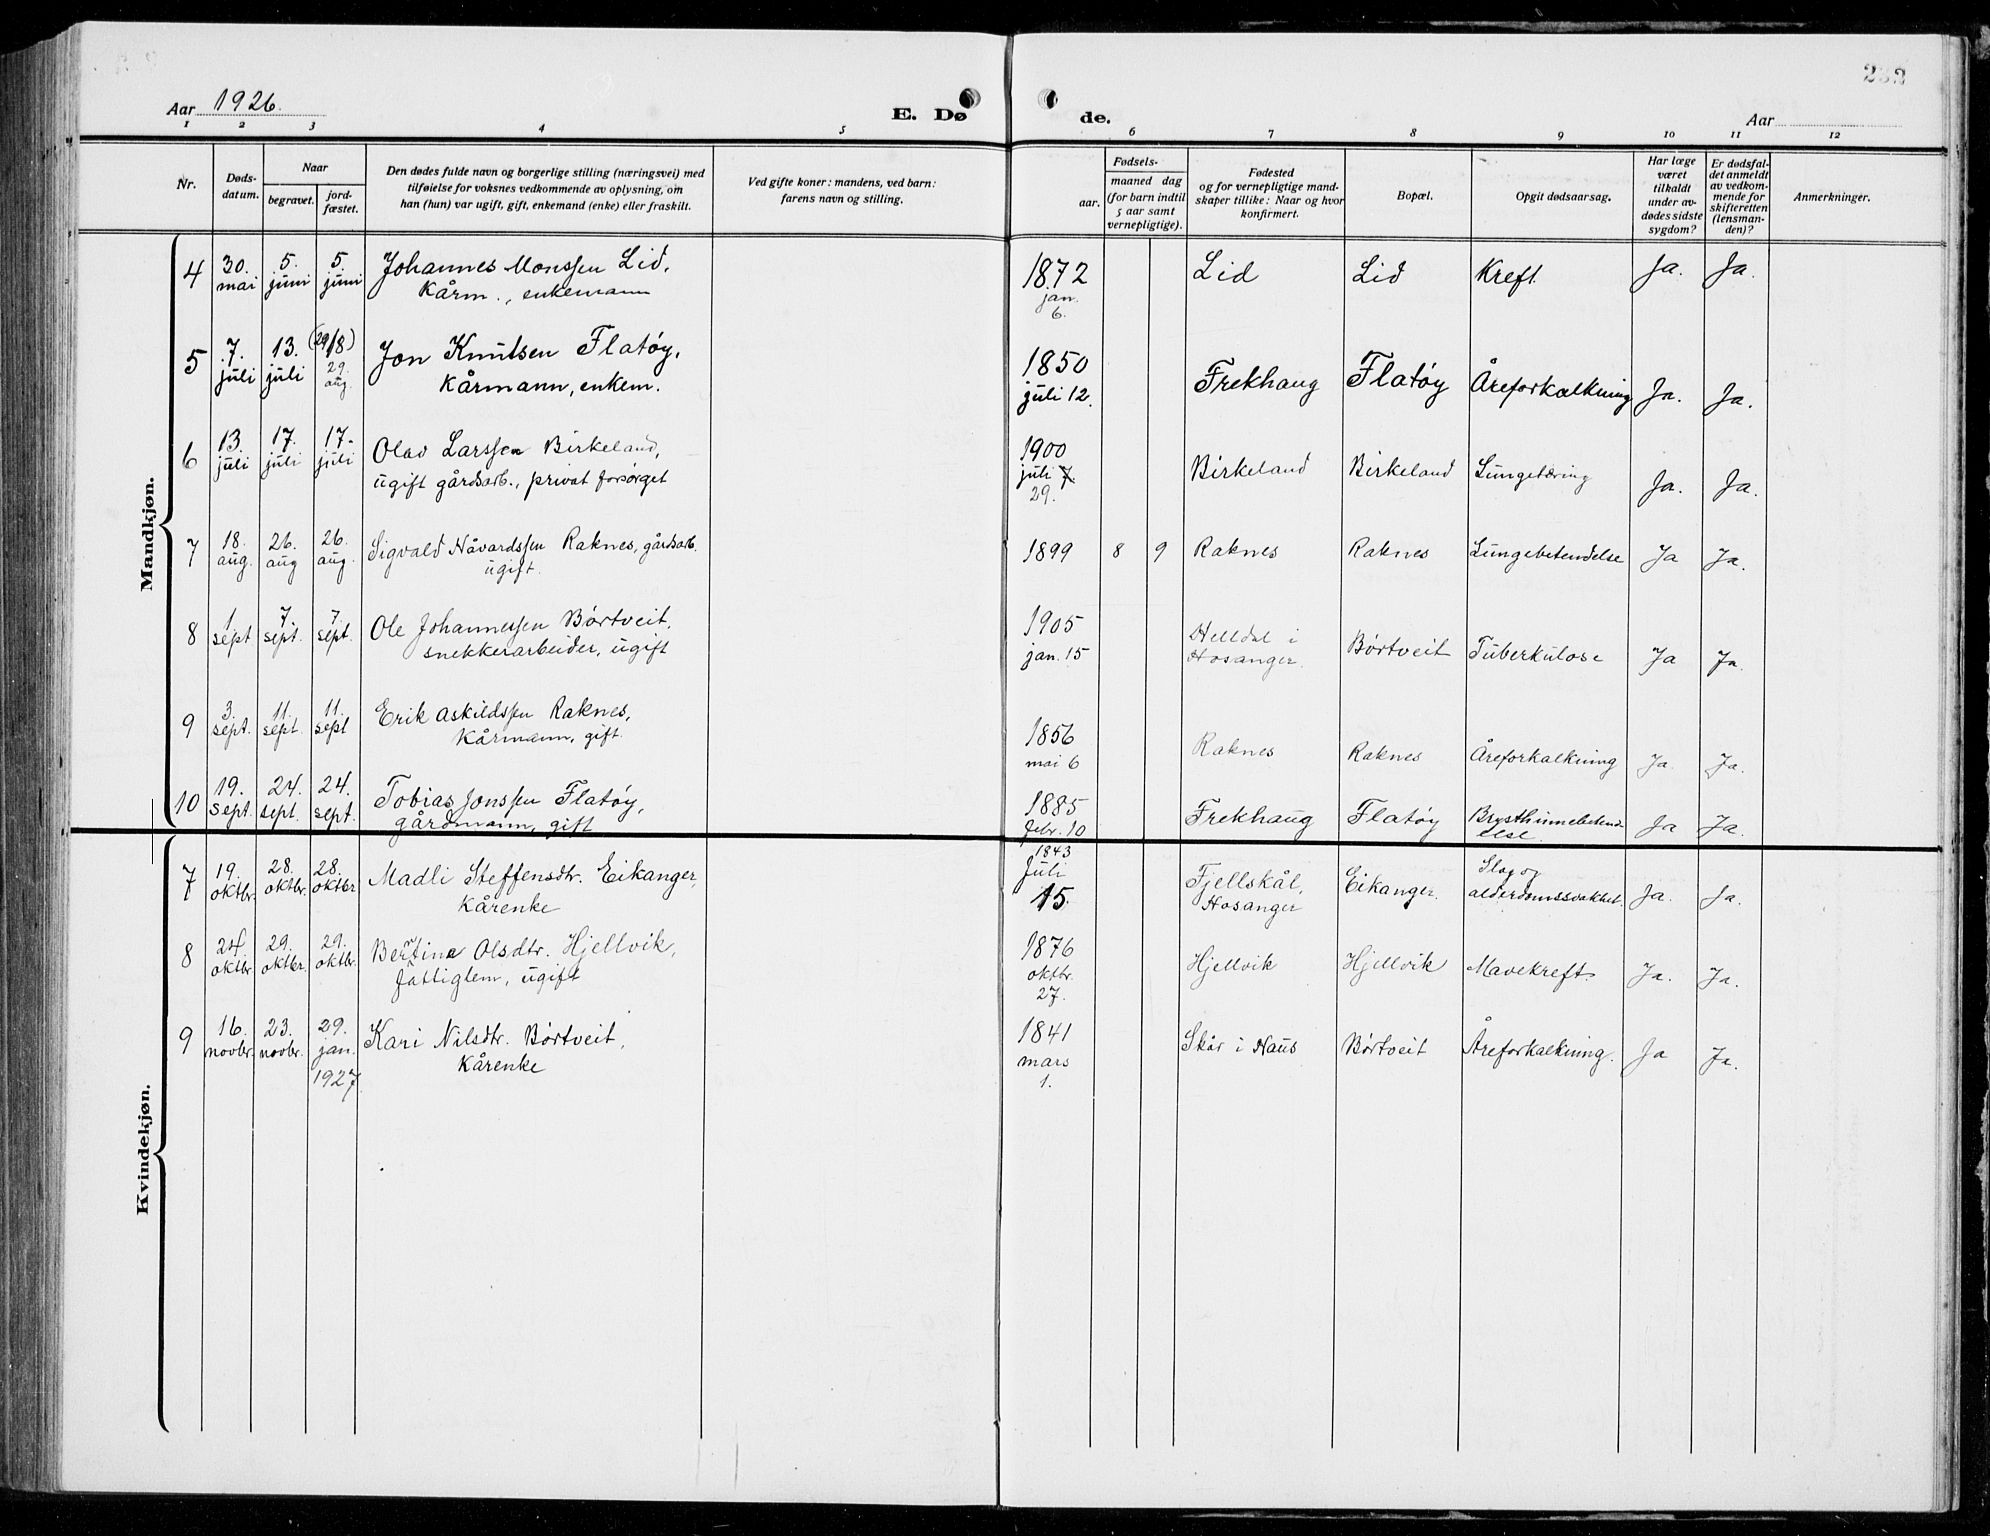 232
Aar 1926.
E. Dø
de.
Aar
1 2 3 4 5 6 7 8 9 10 11 12
Nr.
Døds-
datum.
Naar
begravet.
jord-
fæstet.
Den dødes fulde navn og borgerlige stilling (næringsvei) med
tilføielse for voksnes vedkommende av oplysning, om
han (hun) var ugift, gift, enkemand (enke) eller fraskilt.
Ved gifte koner: mandens, ved barn:
farens navn og stilling.
aar.
Fødsels-
maaned dag
(for barn indtil
5 aar samt
vernepligtige).
Fødested
og for vernepligtige mand-
skaper tillike: Naar og hvor
konfirmert.
Bopæl.
Opgit dødsaarsag.
Har læge
været
tilkaldt
under av-
dødes sidste
sygdom?
Er dødsfal-
det anmeldt
av vedkom-
mende for
skifteretten
(lensman-
den)?
Anmerkninger.
Mandkjøn.
4 30. 5. 5. Johannes Monssen Lid, 1872 Lid Lid Kreft. Ja. Ja.
mai juni juni Kårm., enkemann jan.
6.
5 7. 13. (29/8) Jon Knutsen Flatøy, 1850 Frekhaug Flatøy Åreforkalkning Ja. Ja.
juli juli 29. Kårmann, enkem. juli 12.
aug.
6 13. 17. 17. Olav Larssen Birkeland, 1900 Birkeland Birkeland Lungetæring Ja. Ja.
juli juli juli ugift gårdsarb., privat forsørget juli 7.
29.
7 18. 26. 26. Sigvald Håvardssen Raknes, gårdsarb. 1899 8 9 Raknes Raknes Lungebetendelse Ja Ja.
aug. aug aug. ugift.
8 1 7. 7. Ole Johannessen Børtveit, 1905 Helldal i Børtveit Tuberkulose Ja Ja.
sept sept. sept. snekkerarbeider, ugift jan. 15 Hosanger.
9 3. 11. 11. Erik Askildssen Raknes, 1856 Raknes Raknes Åreforkalkning Ja. Ja.
sept. sept. sept Kårmann, gift. mai 6
10 19. 24. 24. Tobias Jonssen Flatøy, 1885 Frekhaug Flatøy Brysthinnebetend-
sept. sept. sept. gårdmann, gift febr. 10 else. Ja Ja.
Kvindekjøn.
7 19. 28. 28. Madli Steffensdtr. Eikanger, 1843 Fjellskål, Eikanger. Slag og Ja. Ja.
oktbr. oktbr. oktbr Kårenke Juli Hosanger alderdomssvakhet.
15.
8 24. 29. 29. Berntine Olsdtr. Hjellvik, 1876 Hjellvik Hjellvik Mavekreft. Ja. Ja.
oktbr. oktbr. oktbr. fattiglem, ugift oktbr.
27.
9 16. 23. 29. Kari Nilsdtr. Børtveit, 1841 Skår i Haus Børtveit Åreforkalkning. Ja Ja.
novbr. novbr. jan. Kårenke mars
1927. 1.